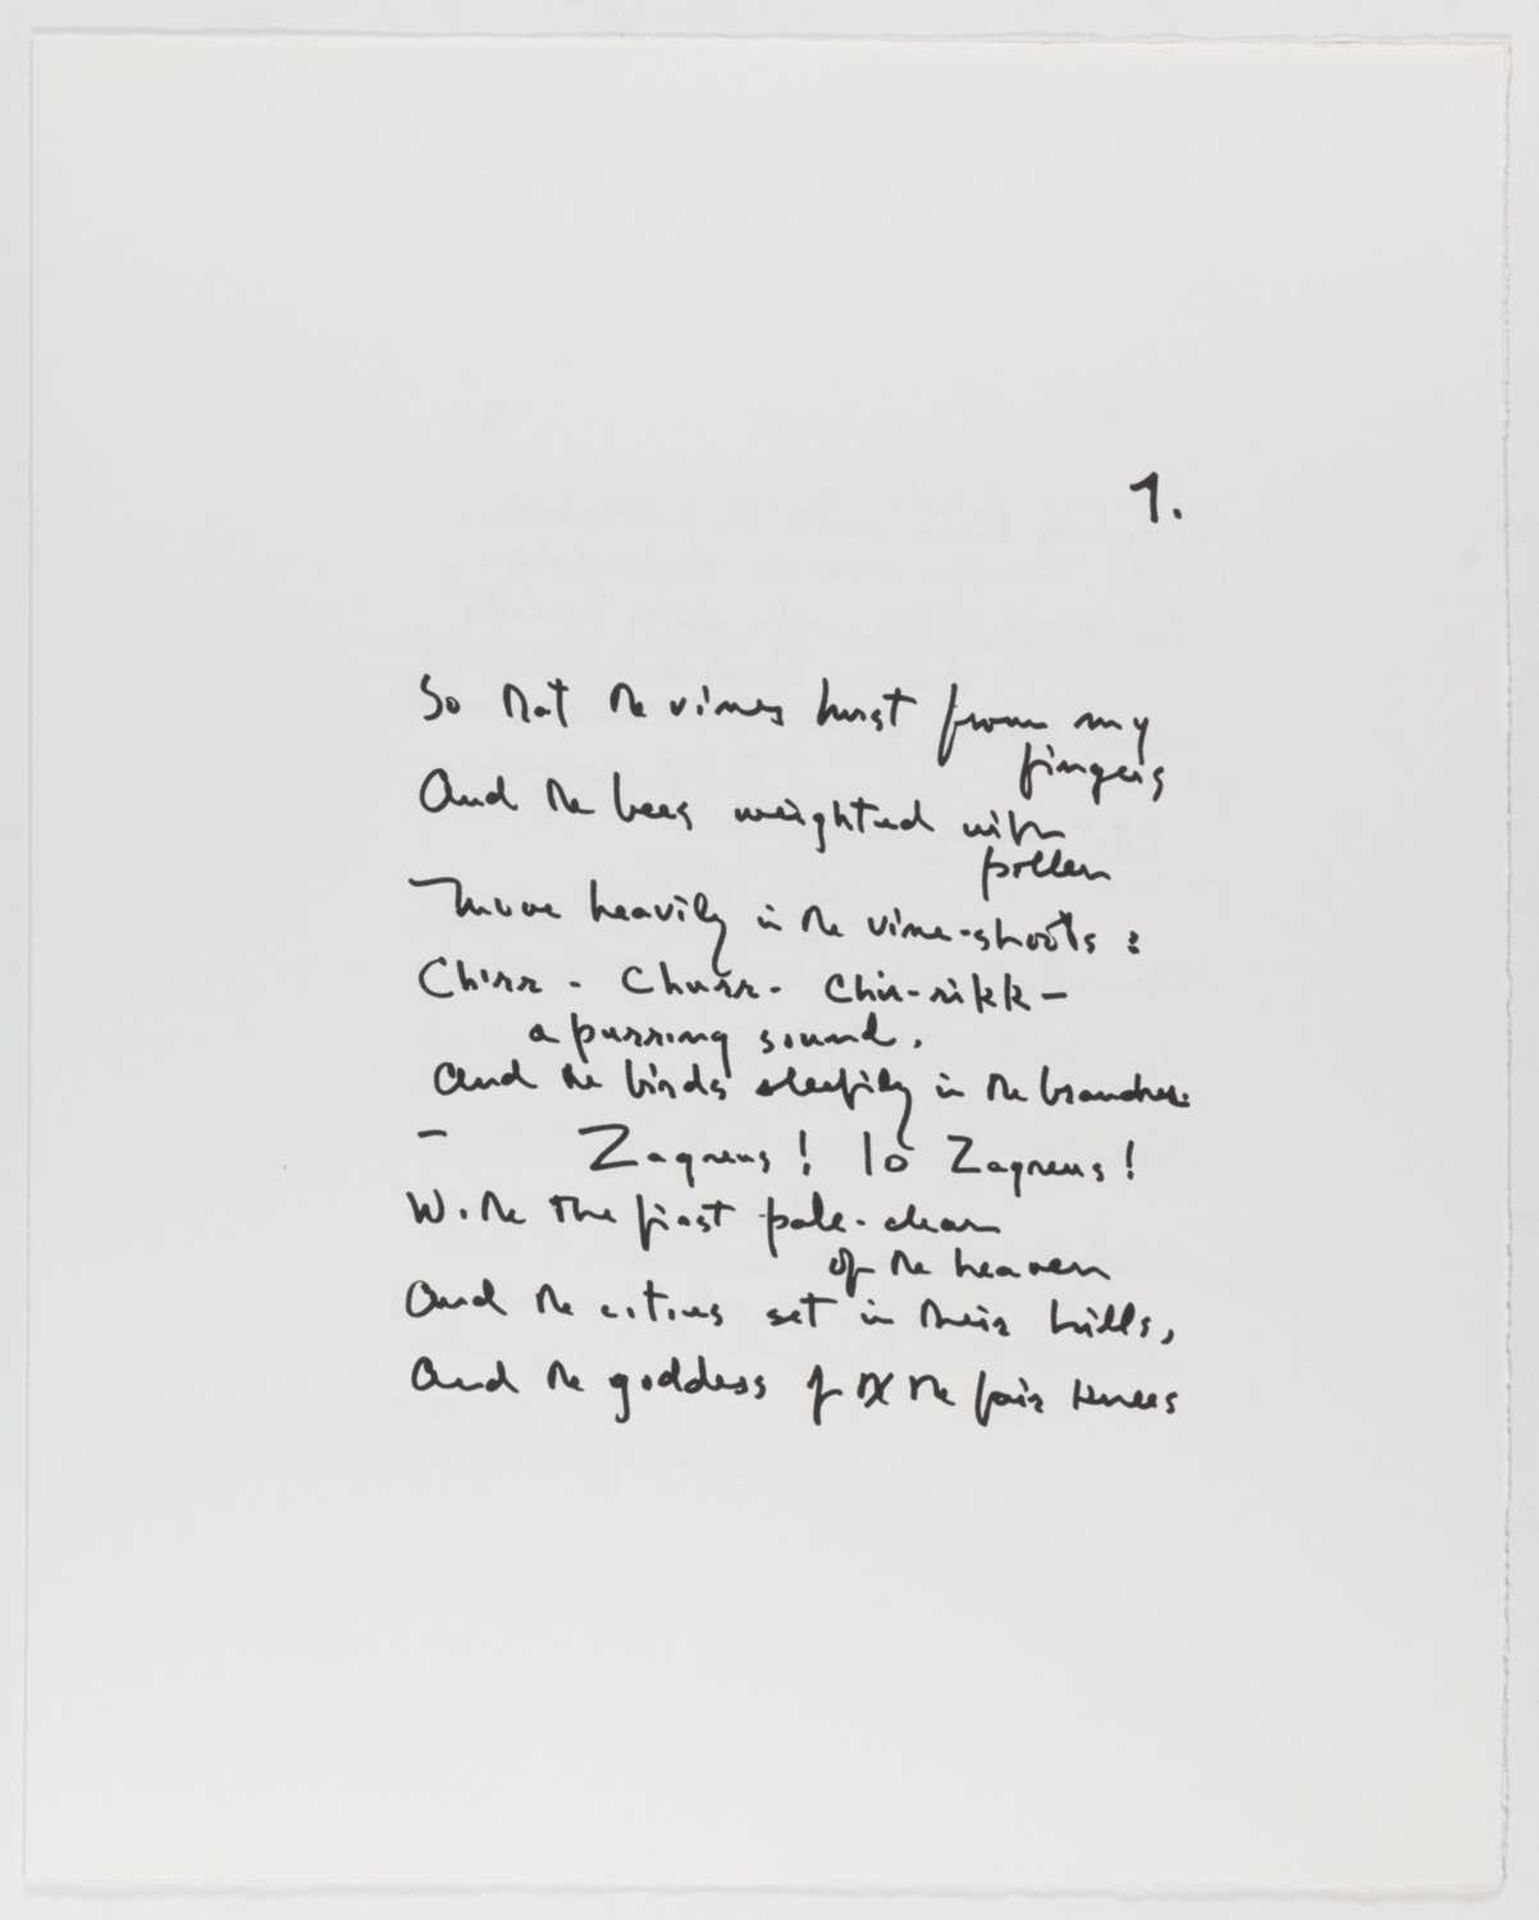 1.
So that the vines burst from my
fingers
And the bees weighted with
pollen
Move heavily in the vine-shoots:
Chirr - Churr - Chir-rikk -
a purring sound,
And the birds sleepily in the branches.
- Zagreus! Io Zagreus!
With the first pale-clear
of the heaven
And the cities set in their hills,
And the goddess of the fair knees